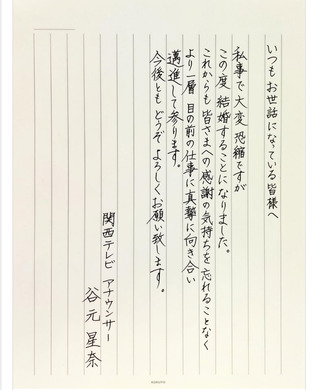 いつもお世話になっている皆様へ
私事で大変恐縮ですが
この度結婚することになりました。
これからも皆さまへの感謝の気持ちを忘れることなく
より一層 目の前の仕事に真摯に向き合い
邁進して参ります。
今後ともどうぞよろしくお願い致します。
関西テレビ アナウンサー
谷元星奈